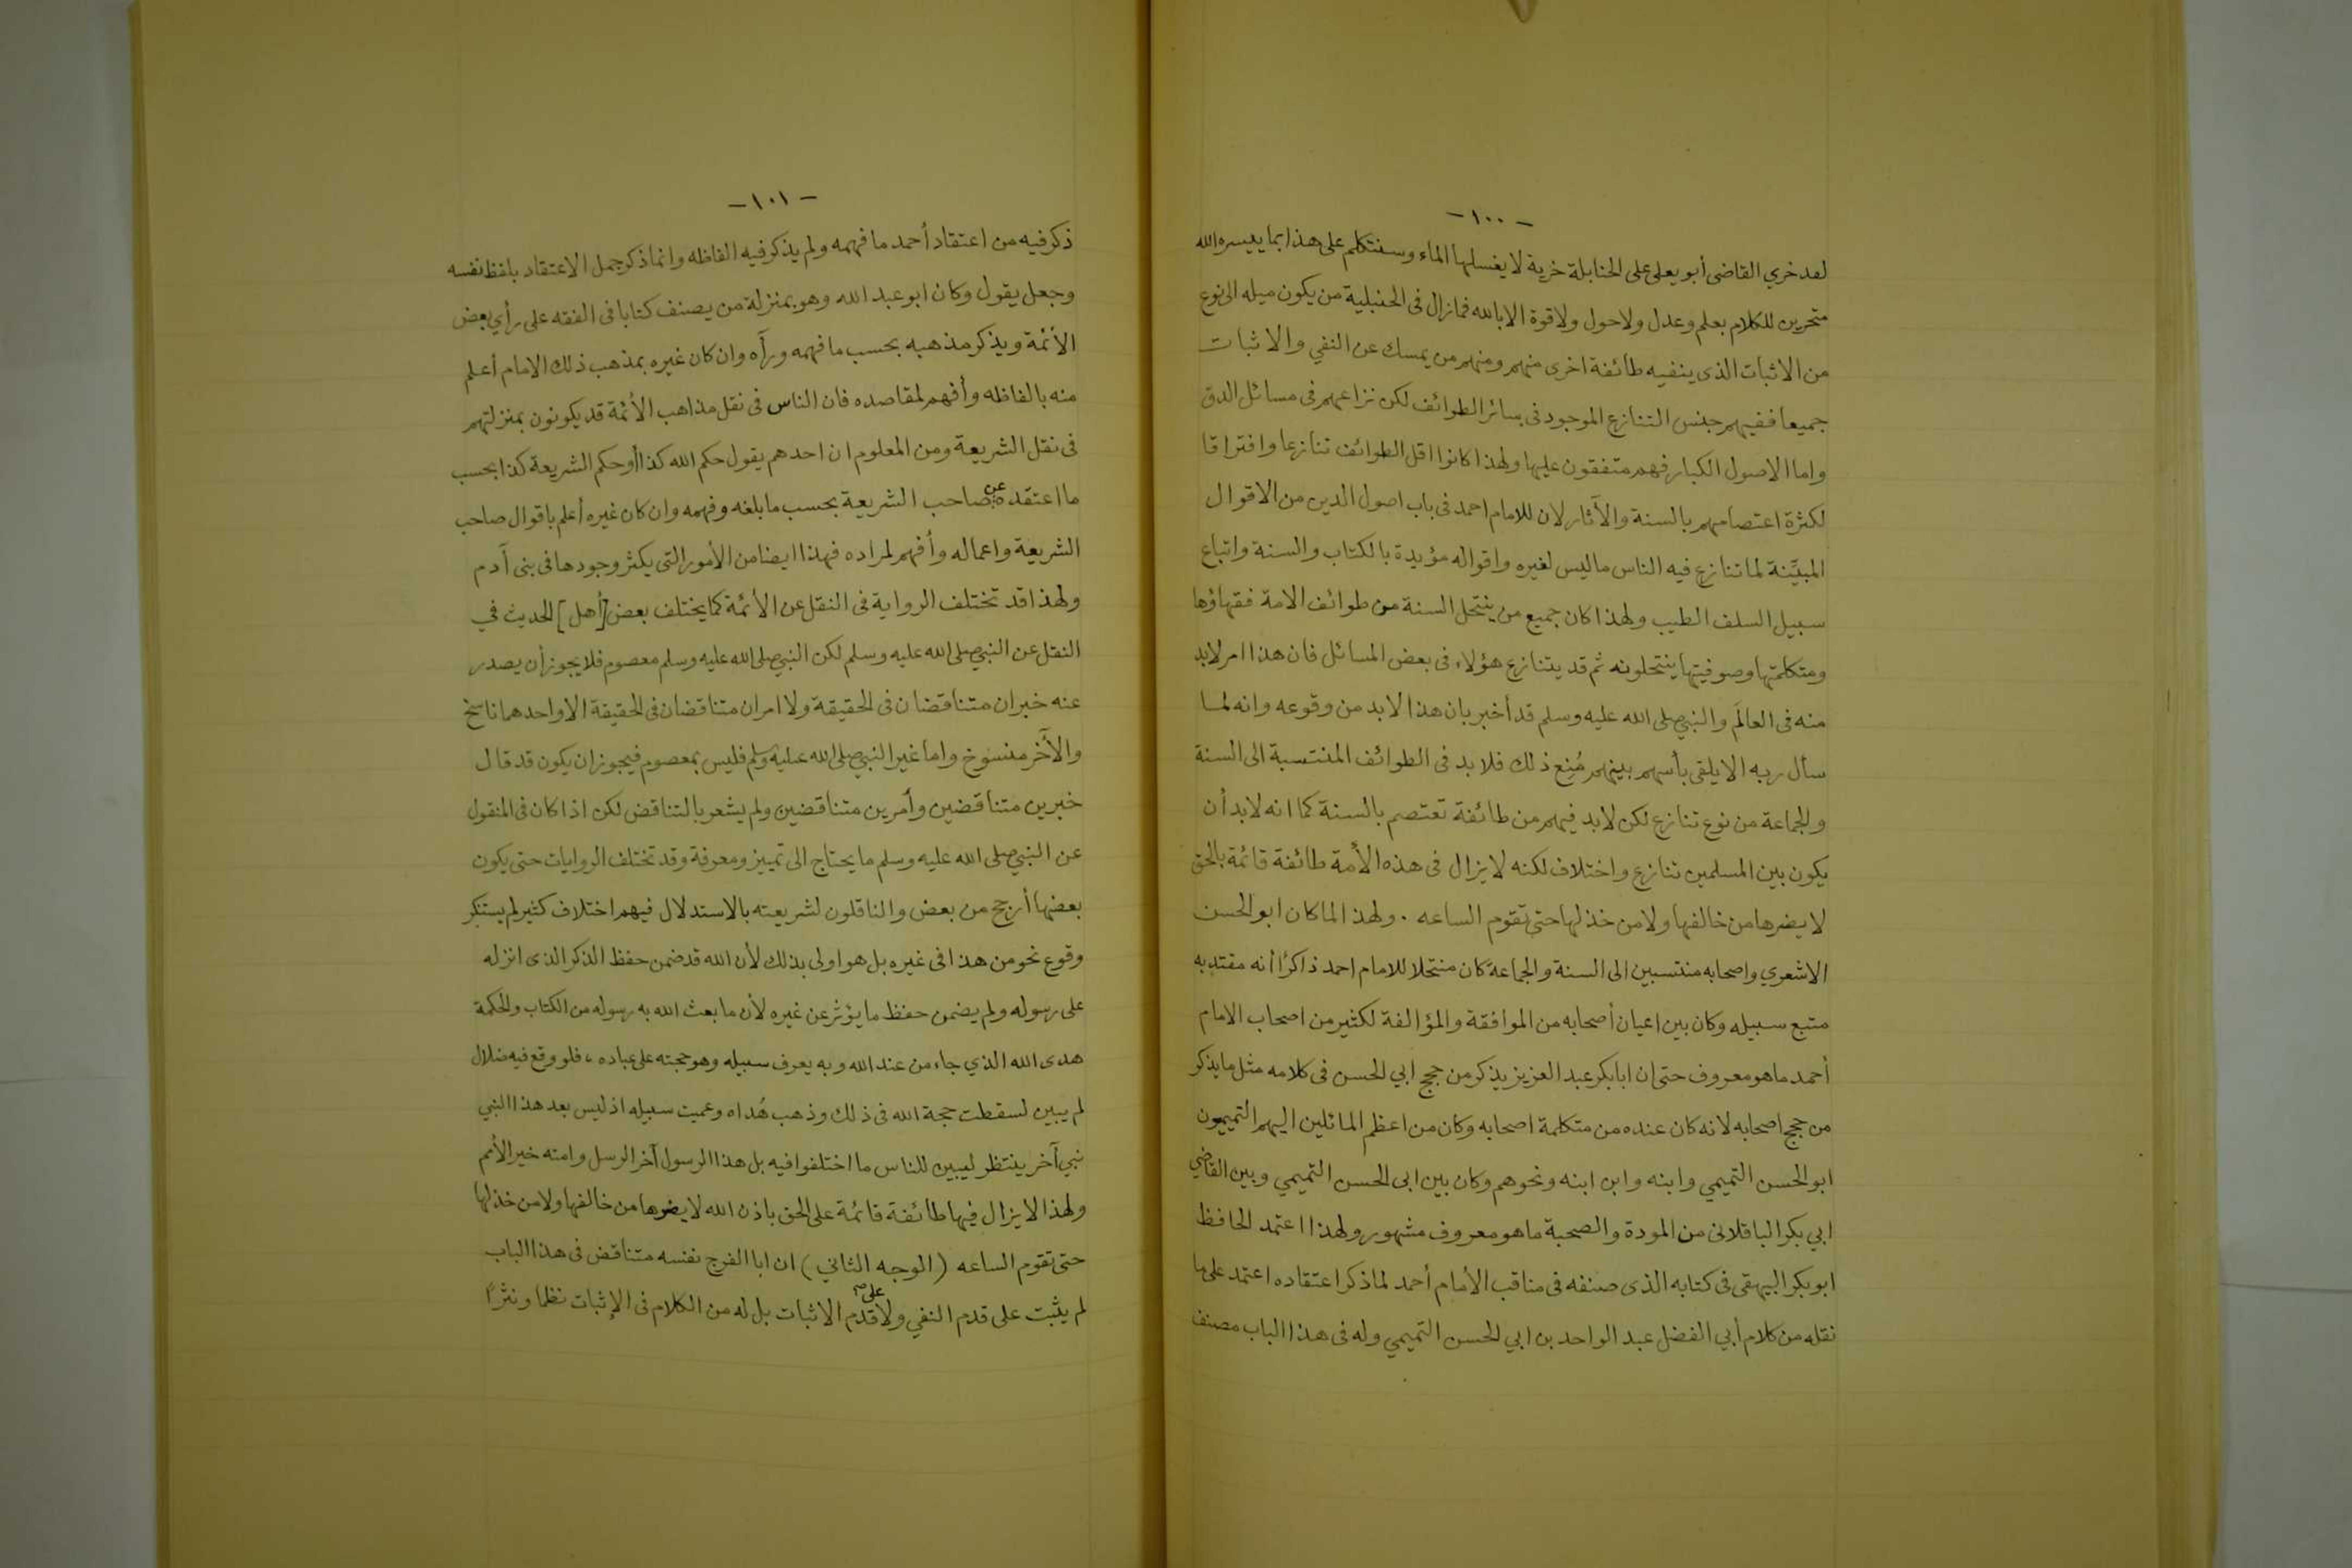 - ١٠٠ -
لقد خري القاضى أبو يعلى على الحنابلة خرية لا يغسلها الماء وسنتكلم على هذا بما ييسره الله
متحرين للكلام بعلم وعدل ولا حول ولا قوة الا بالله فمازال فى الحنبلية من يكون ميله الى نوع
من الاثبات الذى ينفيه طائفة اخرى منهم ومنهم من يمسك عن النفي والاثبات
جميعا ففيهم جنس التنازع الموجود فى سائر الطوائف لكن نزاعهم فى مسائل الدق
واما الاصول الكبار فهم متفقون عليها ولهذا كانوا اقل الطوائف تنازعا وافتراقا
لكثرة اعتصامهم بالسنة والآثار لان للامام احمد فى باب اصول الدين من الاقوال
المبيِّنة لما تنازع فيه الناس ما ليس لغيره واقواله مؤيدة بالكتاب والسنة واتباع
سبيل السلف الطيب ولهذا كان جميع من ينتحل السنة من طوائف الامة فقهاؤها
ومتكلمتها وصوفيتها ينتحلونه ثم قد يتنازع هؤلاء فى بعض المسائل فان هذا امر لابد
منه فى العالَم والنبي صلى الله عليه وسلم قد أخبر بان هذا لابد من وقوعه وانه لما
سأل ربه الا يلقى بأسهم بينهم مُنِع ذلك فلا بد فى الطوائف المنتسبة الى السنة
والجماعة من نوع تنازع لكن لابد فيهم من طائفة تعتصم بالسنة كما انه لابد أن
يكون بين المسلمين تنازع واختلاف لكنه لا يزال فى هذه الأمة طائفة قائمة بالحق
لا يضرها من خالفها ولا من خذلها حتى تقوم الساعه . ولهذا لما كان ابو الحسن
الاشعري واصحابه منتسبين الى السنة والجماعة كان منتحلا للامام احمد ذاكرًا أنه مقتد به
متبع سبيله وكان بين اعيان أصحابه من الموافقة والمؤالفة لكثير من اصحاب الامام
أحمد ما هو معروف حتى ان ابا بكر عبد العزيز يذكر من حجج ابي الحسن فى كلامه مثل ما يذكر
من حجج اصحابه لانه كان عنده من متكلمة اصحابه وكان من اعظم المائلين اليهم التميميون
ابو الحسن التميمي وابنه وابن ابنه ونحوهم وكان بين ابى الحسن التميمي وبين القاضي
ابي بكر الباقلانى من المودة والصحبة ما هو معروف مشهور ولهذا اعتمد الحافظ
ابو بكر البيهقى فى كتابه الذى صنفه فى مناقب الأمام أحمد لما ذكر اعتقاده اعتمد على ما
نقله من كلام أبي الفضل عبد الواحد بن ابي الحسن التميمي وله فى هذا الباب مصنف
- ١٠١ -
ذكر فيه من اعتقاد أحمد ما فهمه ولم يذكر فيه الفاظه وانما ذكر جمل الاعتقاد بلفظ نفسه
وجعل يقول وكان ابو عبد الله وهو بمنزلة من يصنف كتابا فى الفقه على رأي بعض
الأئمة ويذكر مذهبه بحسب ما فهمه ورآه وان كان غيره بمذهب ذلك الامام أعلم
منه بالفاظه وأفهم لمقاصده فان الناس فى نقل مذاهب الأئمة قد يكونون بمنزلتهم
فى نقل الشريعة ومن المعلوم ان احدهم يقول حكم الله كذا أو حكم الشريعة كذا بحسب
ما اعتقده عن صاحب الشريعة بحسب ما بلغه وفهمه وان كان غيره أعلم باقوال صاحب
الشريعة واعماله وأفهم لمراده فهذا ايضا من الأمور التى يكثر وجودها فى بنى آدم
ولهذا قد تختلف الرواية فى النقل عن الأئمة كما يختلف بعض [أهل] الحديث في
النقل عن النبي صلى الله عليه وسلم لكن النبي صلى الله عليه وسلم معصوم فلا يجوز أن يصدر
عنه خبران متناقضان فى الحقيقة ولا امران متناقضان فى الحقيقة الا واحدهما ناسخ
والآخر منسوخ واما غير النبي صلى الله عليه وسلم فليس بمعصوم فيجوز ان يكون قد قال
خبرين متناقضين وأمرين متناقضين ولم يشعر بالتناقض لكن اذا كان فى المنقول
عن النبي صلى الله عليه وسلم ما يحتاج الى تمييز ومعرفة وقد تختلف الروايات حتى يكون
بعضها أرجح من بعض والناقلون لشريعته بالاستدلال فيهم اختلاف كثير لم يستنكر
وقوع نحو من هذا فى غيره بل هو اولى بذلك لأن الله قد ضمن حفظ الذكر الذى انزله
على رسوله ولم يضمن حفظ ما يؤثر عن غيره لأن ما بعث الله به رسوله من الكتاب والحكمة
هدى الله الذي جاء من عند الله وبه يعرف سبيله وهو حجته على عباده ، فلو وقع فيه ضلال
لم يبين لسقطت حجة الله فى ذلك وذهب هُداه وعميت سبيله اذ ليس بعد هذا النبي
نبي آخر ينتظر ليبين للناس ما اختلفوا فيه بل هذا الرسول آخر الرسل وامته خير الأمم
ولهذا لا يزال فيها طائفة قائمة على الحق باذن الله لا يضرها من خالفها ولا من خذلها
حتى تقوم الساعه (الوجه الثاني) ان ابا الفرج نفسه متناقض فى هذا الباب
لم يثبت على قدم النفي ولا على قدم الاثبات بل له من الكلام فى الإثبات نظما ونثرًا